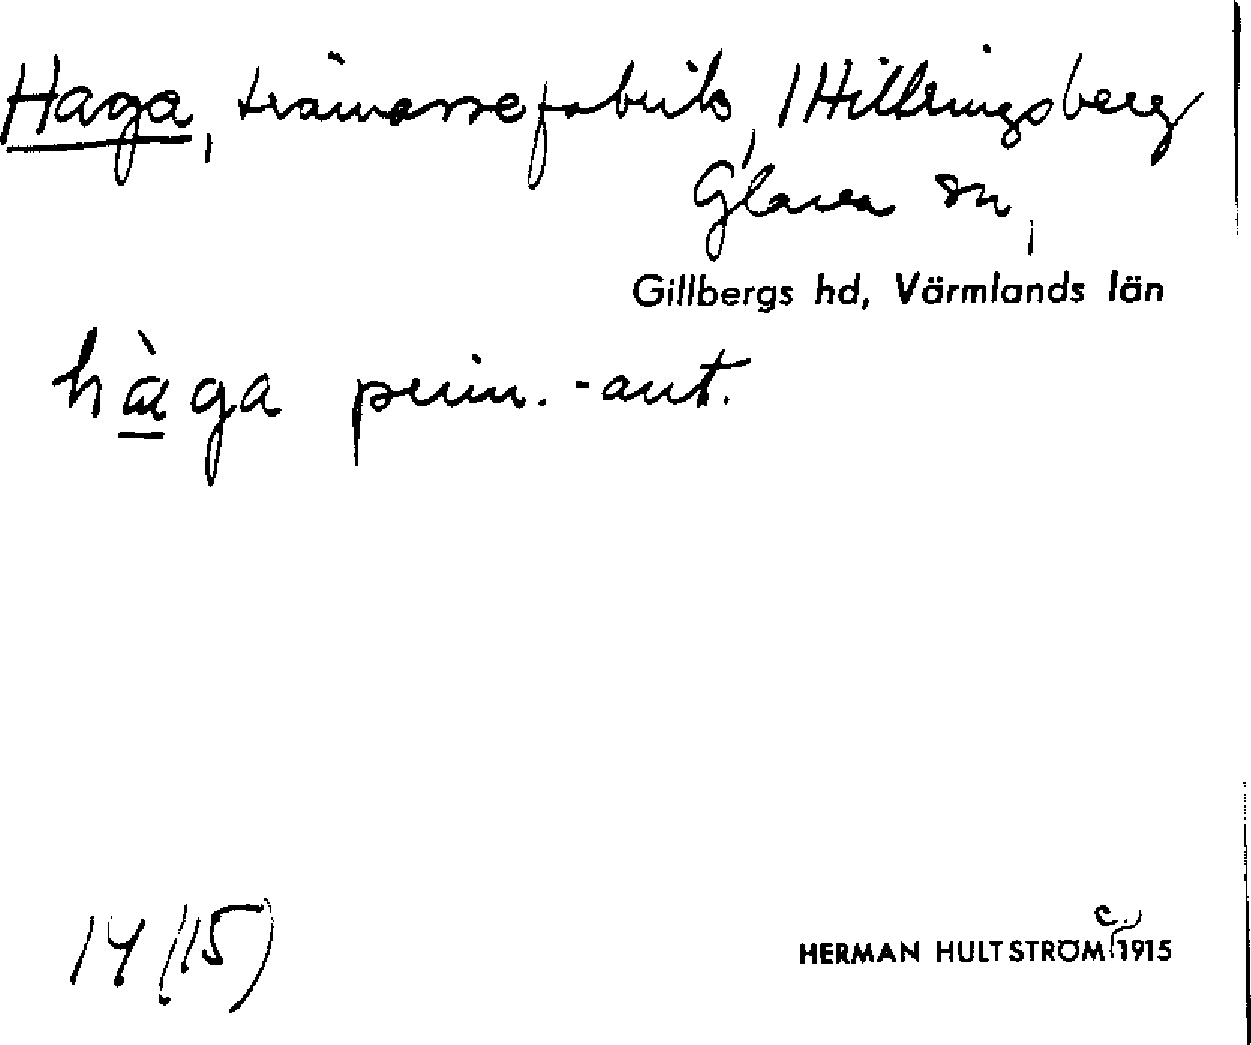 Haga, trämassefabrik, / Hillringsberg
Glava sn,
Gillbergs hd, Värmlands län
hàga penin. -aut.
14 (15)
HERMAN HULTSTRÖM c. 1915